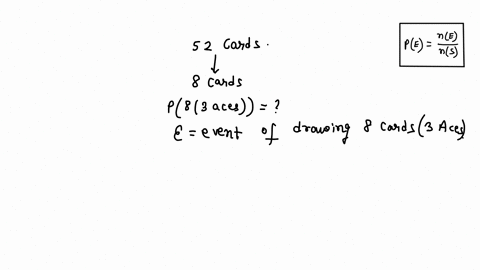 52 Cards.
P(E) = n(E)/n(S)
8 cards
P(8(3 aces)) = ?
E = event of drawing 8 cards (3 Aces)